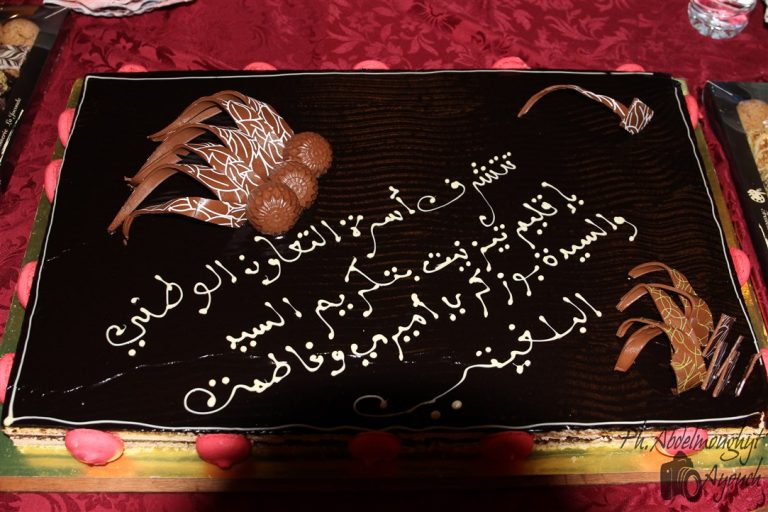 تتشرف أسرة التعاون الوطني
بإقليم تيزنيت بتكريم السيد
والسيدة بوزكريا أميري وفاطمة
البلغيتي
Ph. Abdelmoughyt
Ayouch